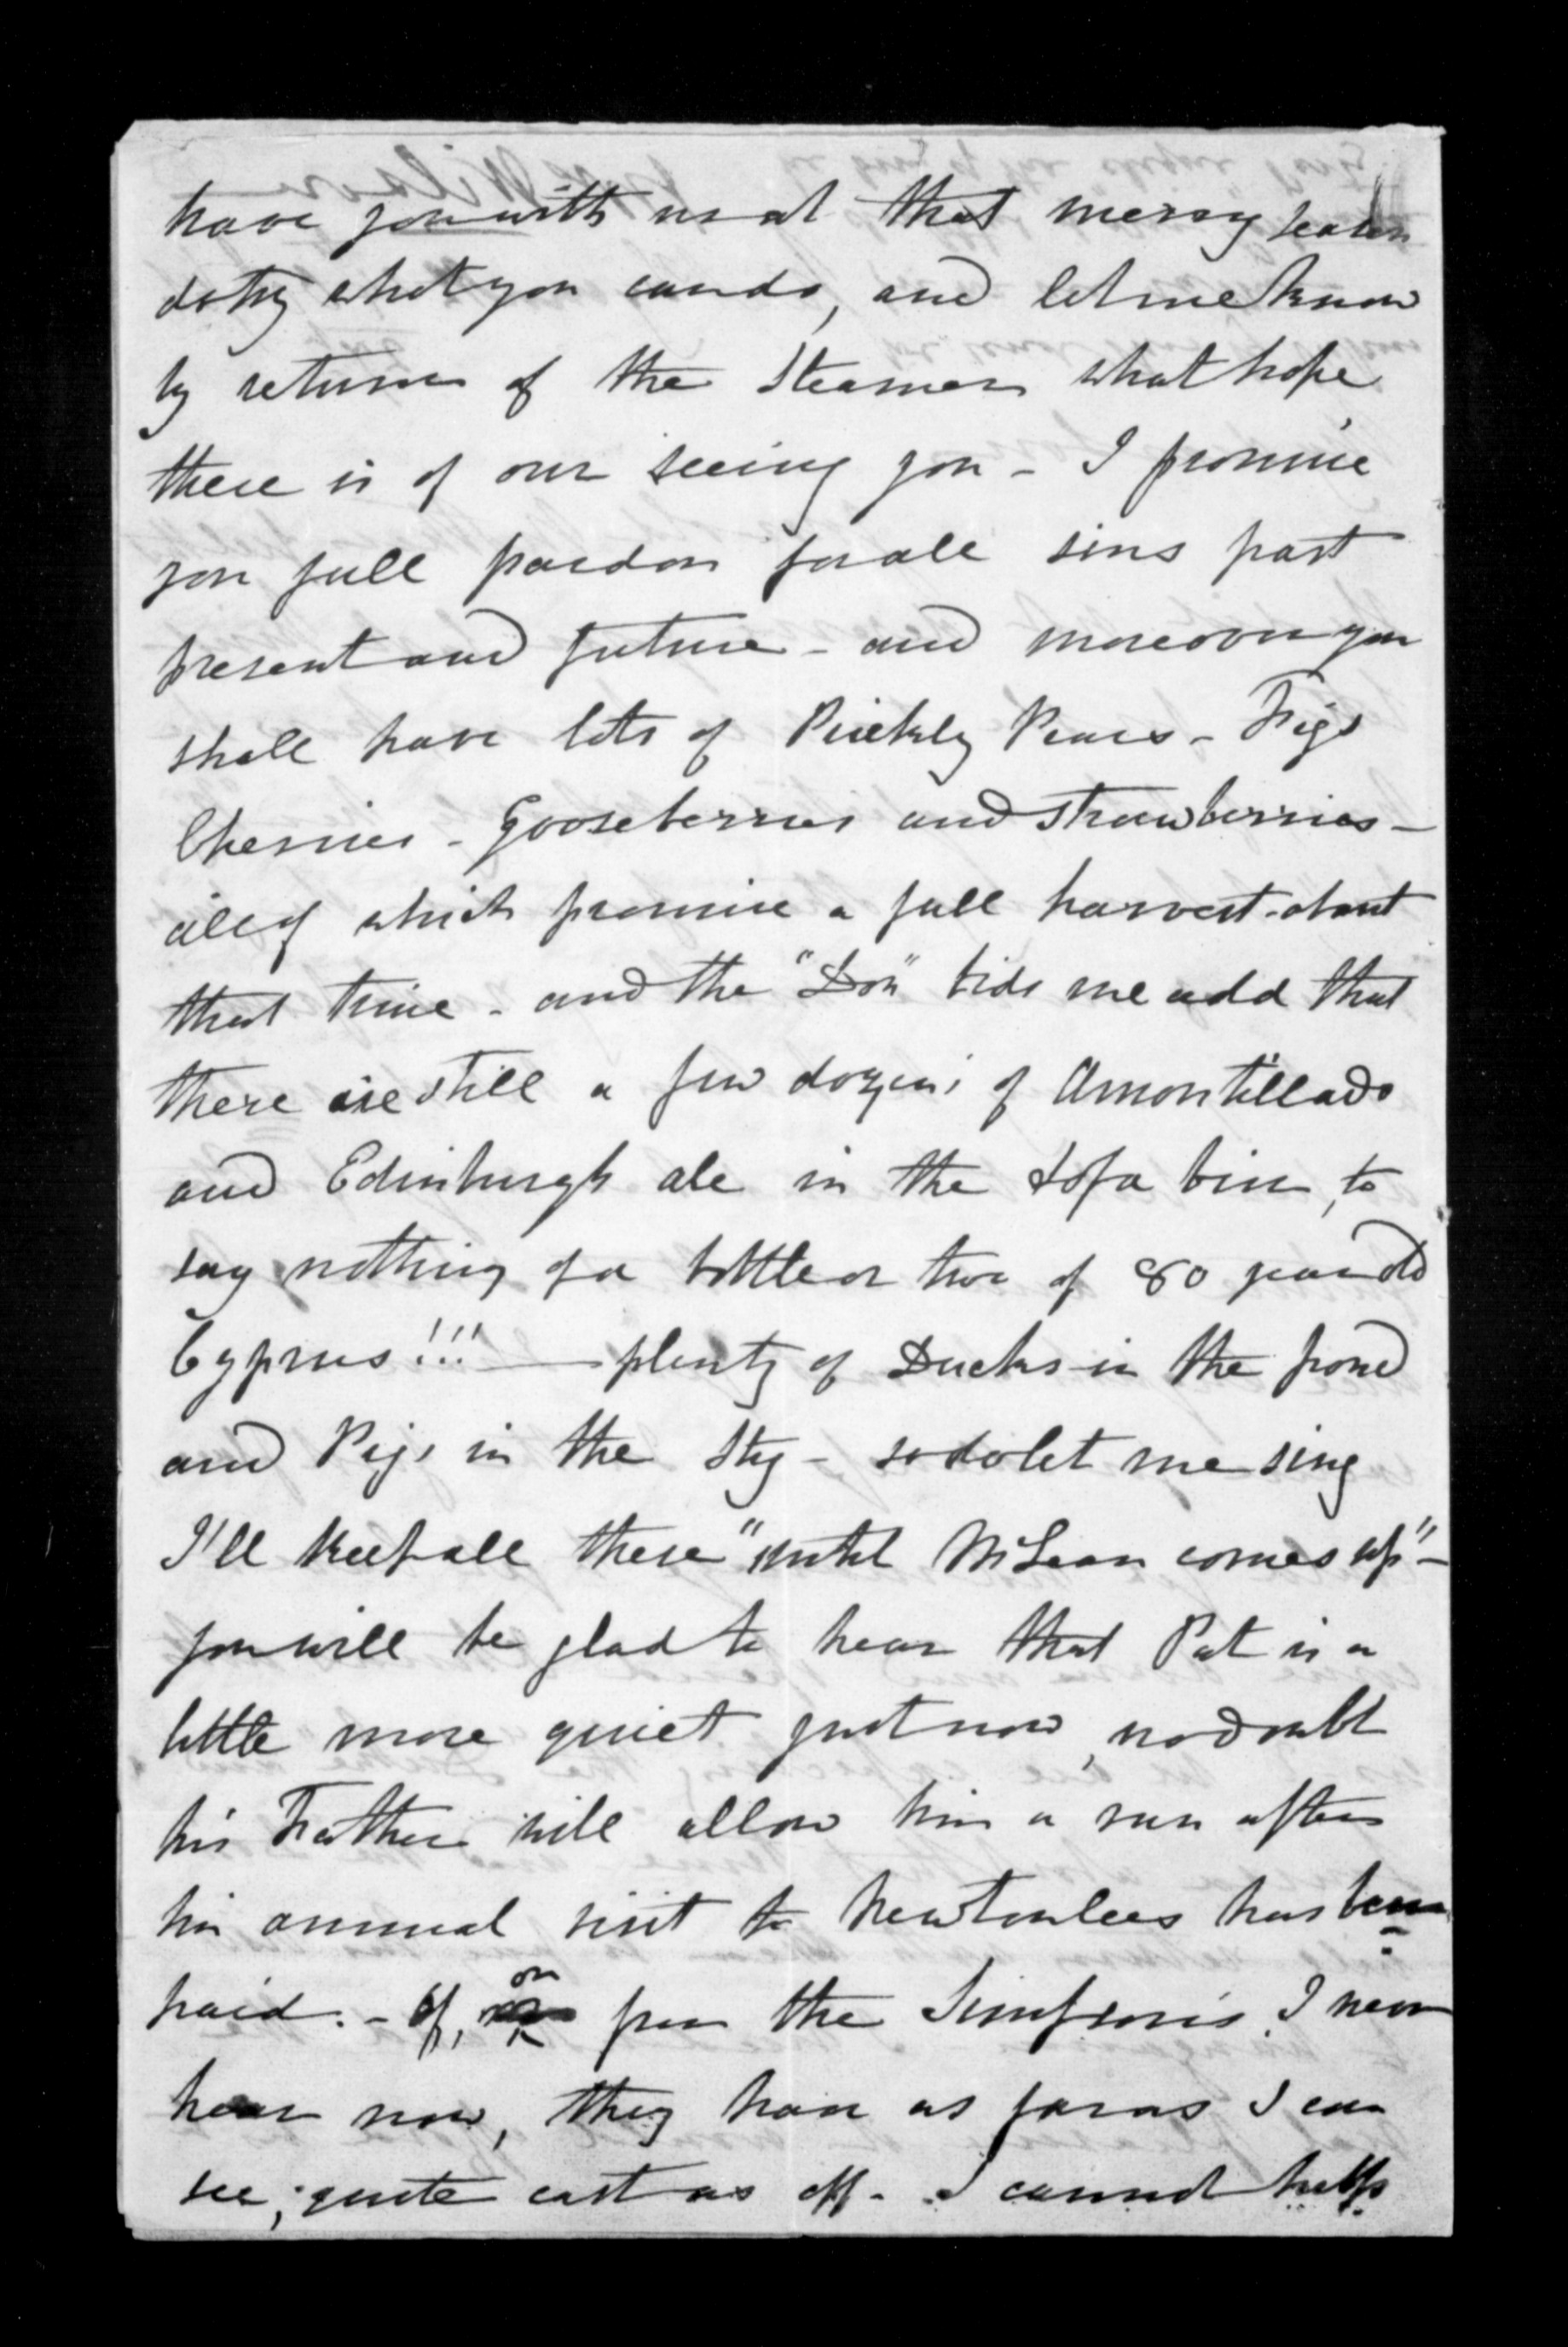 have you with us at that merry season
do try what you can do, and let me know
by return of the Steamer what hope
there is of our seeing you - I promise
you full pardon for all sins past
present and future - and moreover you
shall have lots of Prickly Pears - Figs
Cherries - Gooseberries and Strawberries -
all of which promise a full harvest about
that time - and the "Don" bids me add that
there are still a few dozens of Amontillado
and Edinburgh ale in the Sofa bin, to
say nothing of a bottle or two of 80 year old
Cyprus!!! — plenty of Ducks in the pond
and Pigs in the Sty - so do let me sing
I'll keep all these "until McLean comes up" -
you will be glad to hear that Pat is a
little more quiet just now, no doubt
his Father will allow him a run after
his annual visit to Newtonlees has been
paid. - Of, or from the Simpsons, I never
hear now, they have as far as I can
see, quite cast us off - I cannot help